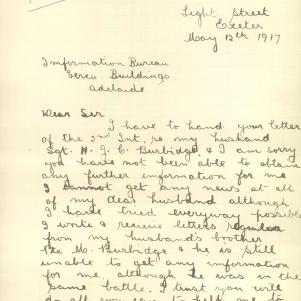 Light Street
Exeter
May 12th 1917
Information Bureau
Verco Buildings
Adelaide
Dear Sir
I have to hand your letter
of the 2nd Int. re my husband
Sgt. H. J. C. Burbidge & I am sorry
you have not been able to obtain
any further information for me
I cannot get any news at all
of my dear husband although
I have tried everyway possible
I write & receive letters
from my husband's brother
Burbidge & he is still
unable to get any information
for me, although he was in the
same battle. I trust you will
do all you can to help me to